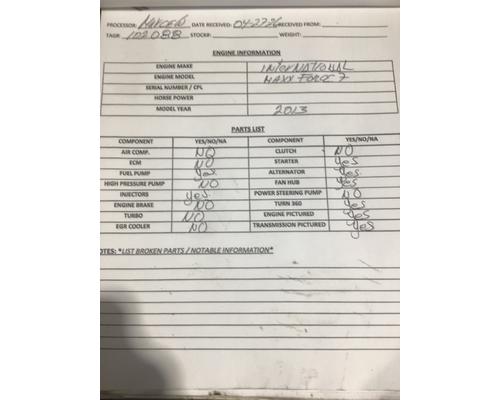 PROCESSOR: MARCELO DATE RECEIVED: 04-27-26 RECEIVED FROM:
TAG#: 102088 STOCK#: WEIGHT:
ENGINE INFORMATION
ENGINE MAKE INTERNATIONAL
ENGINE MODEL MAXX FORCE 7
SERIAL NUMBER / CPL
HORSE POWER
MODEL YEAR 2013
PARTS LIST
COMPONENT YES/NO/NA COMPONENT YES/NO/NA
AIR COMP. NO CLUTCH NO
ECM NO STARTER Yes
FUEL PUMP Yes ALTERNATOR Yes
HIGH PRESSURE PUMP NO FAN HUB Yes
INJECTORS Yes POWER STEERING PUMP NO
ENGINE BRAKE NO TURN 360 Yes
TURBO NO ENGINE PICTURED Yes
EGR COOLER NO TRANSMISSION PICTURED Yes
OTES: *LIST BROKEN PARTS / NOTABLE INFORMATION*